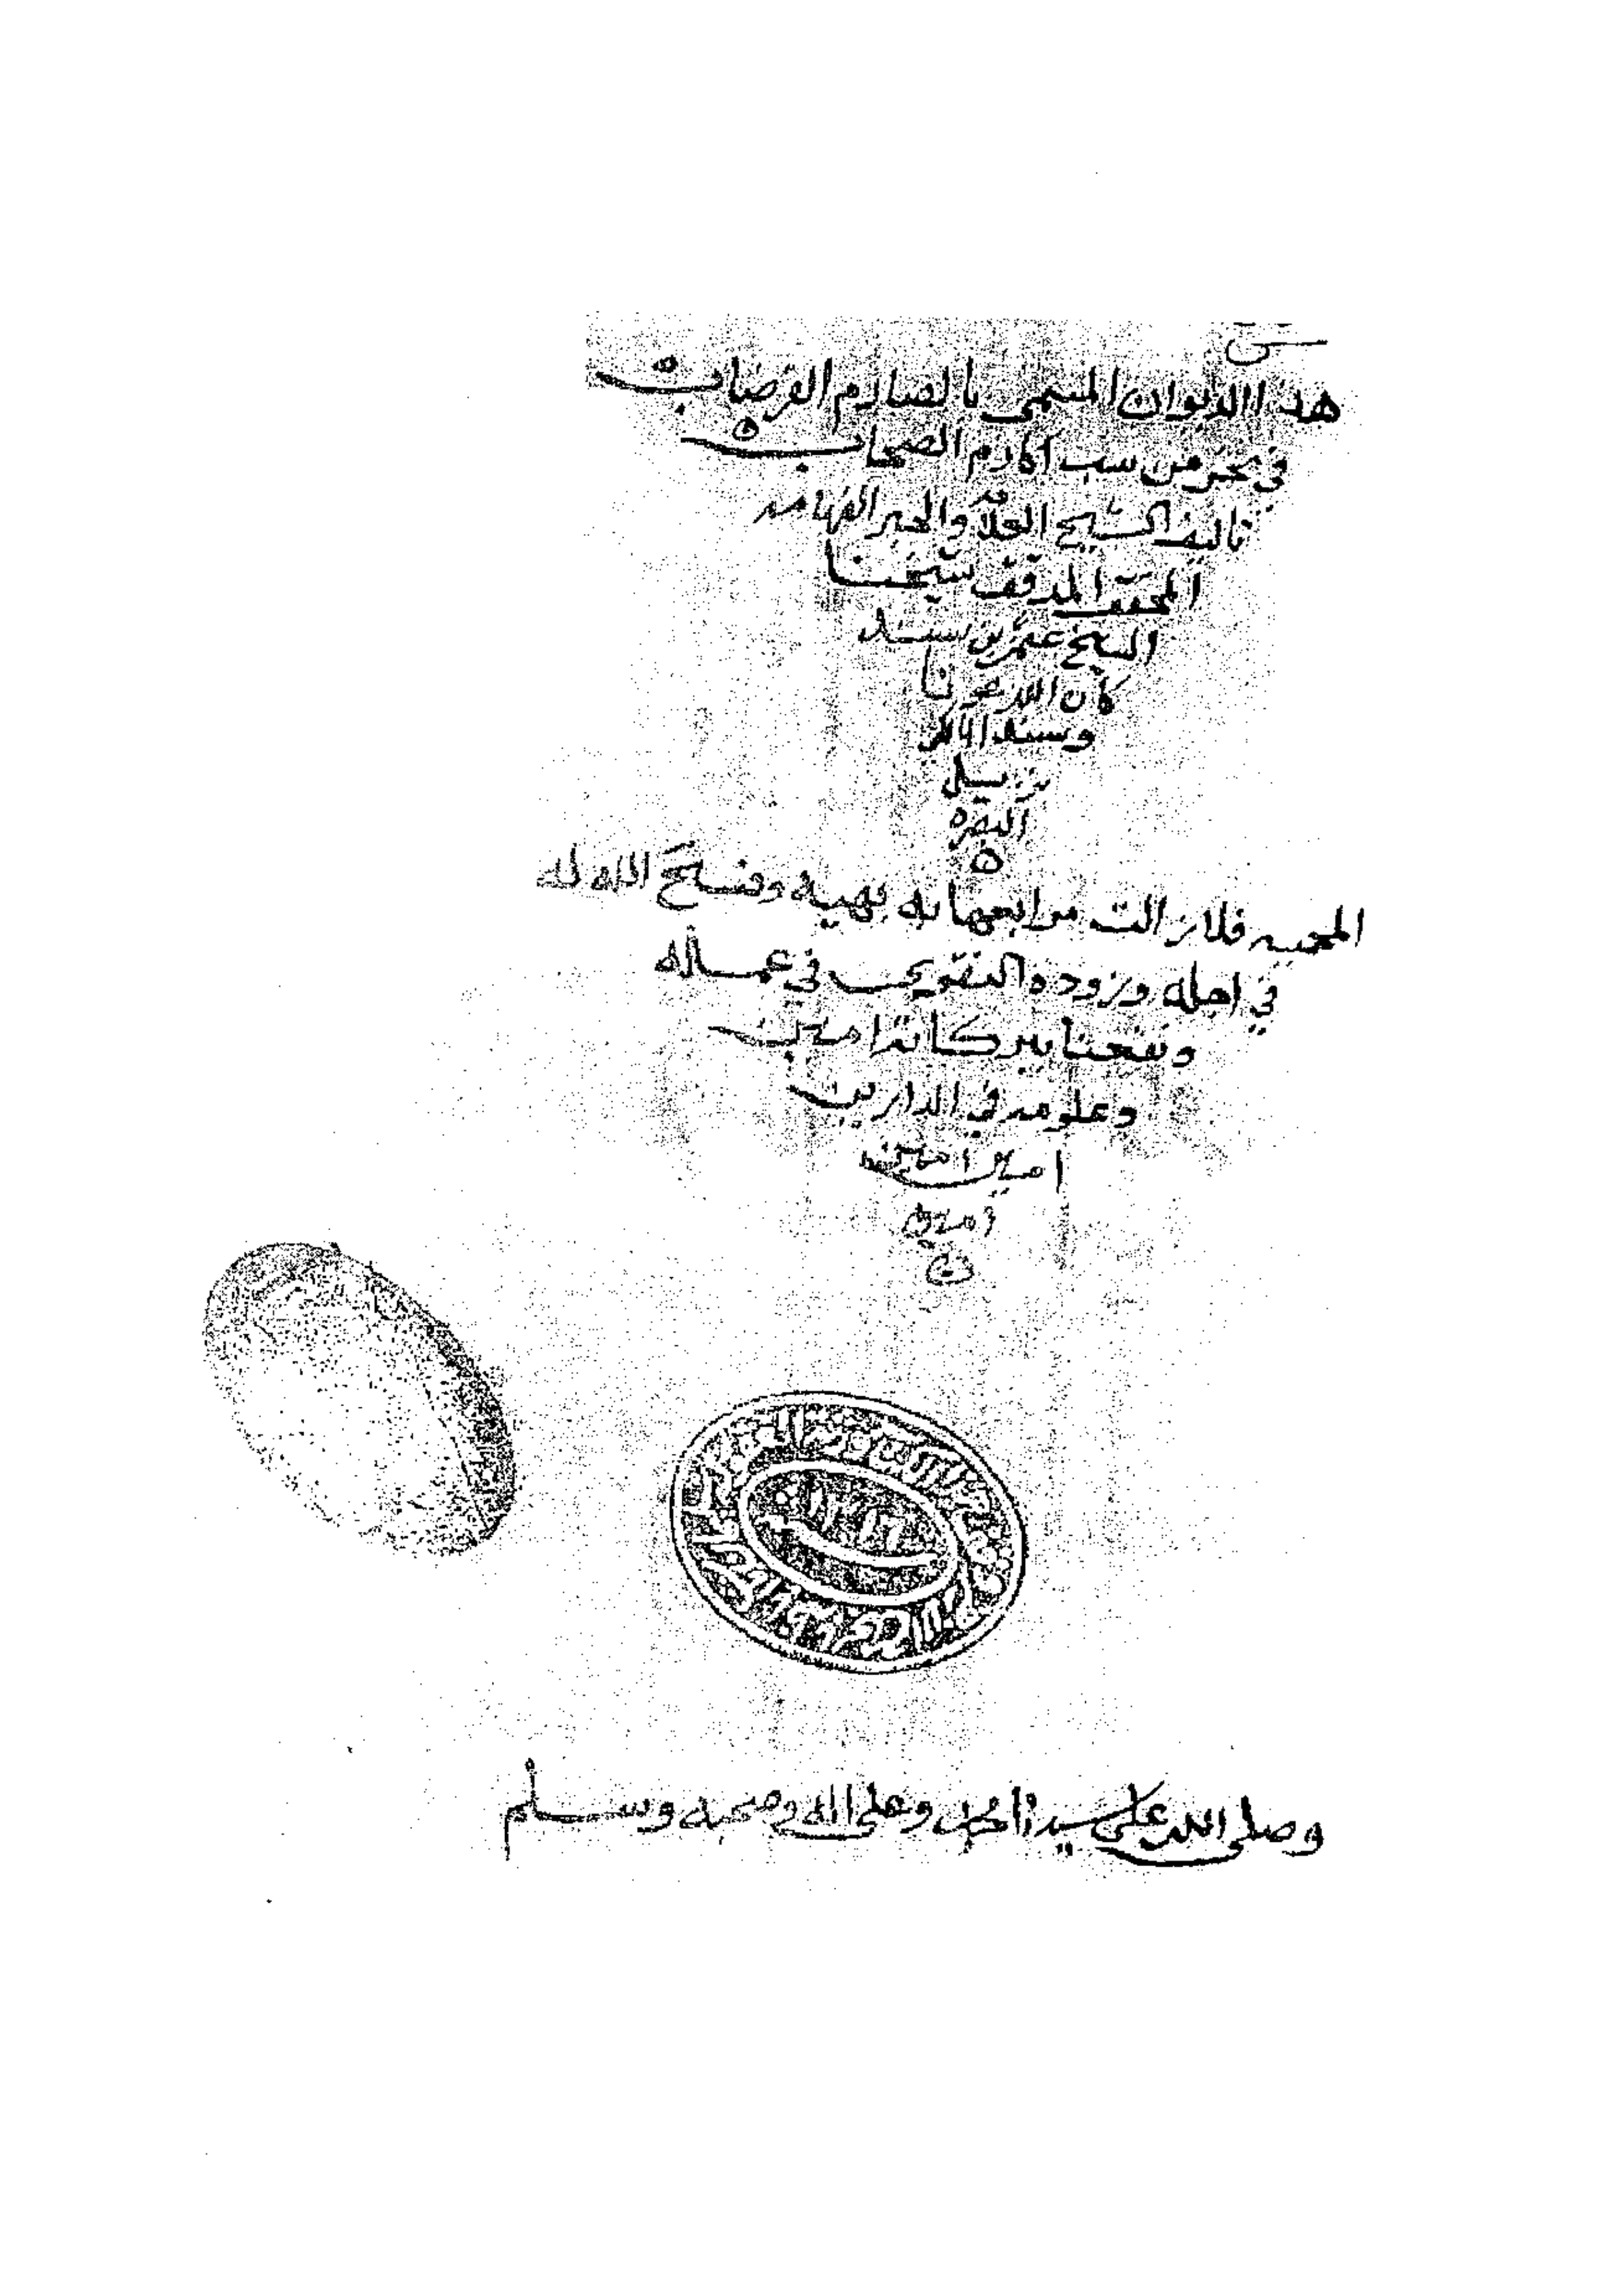 هذا الديوان المسمى بالصارم القرضاب
في نحر من سب اكارم الاصحاب
تاليف الشيخ العلامة والحبر الفهامه
المحقق المدقق شيخنا
الشيخ عثمن بن سند
كان الله عونا
وسندا المالكي
نزيل
البصره
المحميه فلا زالت مرابعها به بهيه وفسح الله له
في اجله وزوده التقوى في عمله
ونفعنا ببركاته امين
وعلومه في الدارين
امين امين
امين
وصلى الله على سيدنا محمد وعلى اله وصحبه وسلم